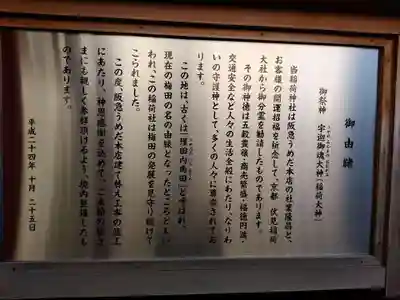 御由緒
御祭神 宇迦御魂大神(稲荷大神)
当稲荷神社は阪急うめだ本店の社業隆昌と、
お客様の開運招福を祈念して、京都 伏見稲荷
大社から御分霊を勧請したものであります。
その御神徳は五穀豊穣・商売繁盛・福徳円満・
交通安全など人々の生活全般にわたり、なりわ
いの守護神として、多くの人々に尊崇されてお
ります。
この地は、古くは「 」と呼ばれ、
現在の梅田の名の由縁となったところといい
われ、この稲荷社は梅田の発展を見守り続けて
こられました。
この度、阪急うめだ本店建て替え工事の竣工
にあたり、神恩感謝を込めて、ご来店の皆さ
まにも親しく参拝頂けるよう、境内を造したも
のであります。
平成二十四年 十月 二十五日